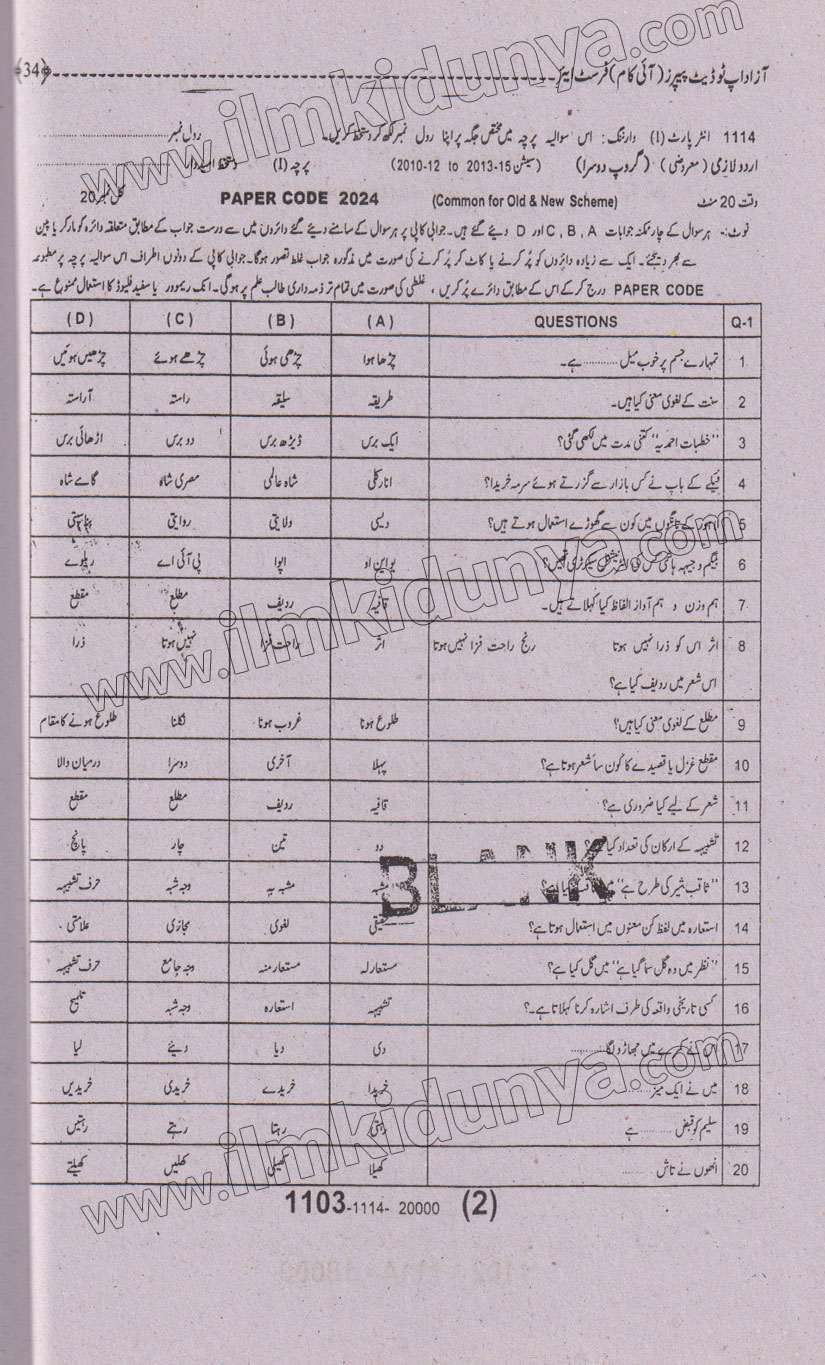 آزاد اپ ٹو ڈیٹ پیپرز (آئی کام) فرسٹ ایئر ﴿34﴾
1114 انٹر پارٹ (I) وارننگ: اس سوالیہ پرچہ میں مختص جگہ پر اپنا رول نمبر لکھ کر دستخط کریں۔ رول نمبر
اردو لازمی (معروضی) (گروپ دوسرا) (سیشن 2010-12 to 2013-15) پرچہ (I) دستخط امیدوار
وقت 20 منٹ (Common for Old & New Scheme) PAPER CODE 2024 کل نمبر 20
نوٹ:- ہر سوال کے چار ممکنہ جوابات C, B, A اور D دیئے گئے ہیں۔ جوابی کاپی پر ہر سوال کے سامنے دیئے گئے دائروں میں سے درست جواب کے مطابق متعلقہ دائرہ کو مارکر یا پین
سے بھر دیجئے۔ ایک سے زیادہ دائروں کو پُر کرنے یا کاٹ کر پُر کرنے کی صورت میں مذکورہ جواب غلط تصور ہوگا۔ جوابی کاپی کے دونوں اطراف اس سوالیہ پرچہ پر مطبوعہ
PAPER CODE درج کر کے اس کے مطابق دائرے پُر کریں، غلطی کی صورت میں تمام تر ذمہ داری طالب علم پر ہوگی۔ انک ریموور یا سفید فلیوڈ کا استعمال ممنوع ہے۔
Q-1 QUESTIONS (A) (B) (C) (D)
1 تمہارے جسم پر خوب میل .......... ہے۔ چڑھا ہوا چڑھی ہوئی چڑھے ہوئے چڑھیں ہوئیں
2 سنت کے لغوی معنی کیا ہیں۔ طریقہ سلیقہ راستہ آراستہ
3 "خطبات احمدیہ" کتنی مدت میں لکھی گئی؟ ایک برس ڈیڑھ برس دو برس اڑھائی برس
4 فیکے کے باپ نے کس بازار سے گزرتے ہوئے سرمہ خریدا؟ انارکلی شاہ عالمی مصری شاہ گامے شاہ
5 لاہور کے تانگوں میں کون سے گھوڑے استعمال ہوتے ہیں؟ دیسی ولایتی روایتی بناسپتی
6 بیگم وجیہہ ہاشمی کس کی انٹرنیشنل سیکرٹری تھیں؟ یو این او اپوا پی آئی اے ریلوے
7 ہم وزن و ہم آواز الفاظ کیا کہلاتے ہیں۔ قافیہ ردیف مطلع مقطع
8 اثر اس کو ذرا نہیں ہوتا رنج راحت فزا نہیں ہوتا اثر راحت فزا نہیں ہوتا ذرا
اس شعر میں ردیف کیا ہے؟
9 مطلع کے لغوی معنی کیا ہیں؟ طلوع ہونا غروب ہونا نکلنا طلوع ہونے کا مقام
10 مقطع غزل یا قصیدے کا کون سا شعر ہوتا ہے؟ پہلا آخری دوسرا درمیان والا
11 شعر کے لیے کیا ضروری ہے؟ قافیہ ردیف مطلع مقطع
12 تشبیہہ کے ارکان کی تعداد کیا ہے؟ دو تین چار پانچ
13 "ثاقب شیر کی طرح ہے" میں ثاقب کیا ہے؟ مشبہ مشبہ بہ وجہ شبہ حرف تشبیہہ
BLANK
14 استعارہ میں لفظ کن معنوں میں استعمال ہوتا ہے؟ حقیقی لغوی مجازی علامتی
15 "نظر میں وہ گل سما گیا ہے" میں گل کیا ہے؟ مستعار لہ مستعار منہ وجہ جامع حرف تشبیہہ
16 کسی تاریخی واقعہ کی طرف اشارہ کرنا کہلاتا ہے۔؟ تشبیہہ استعارہ وجہ شبہ تلمیح
17 اس نے کمرے میں جھاڑو لگا .......... دی دیا دیئے لیا
18 میں نے ایک میز .......... خریدا خریدے خریدی خریدیں
19 سلیم کو قبض .......... ہے رہتی رہتا رہتے رہتیں
20 انھوں نے تاش .......... کھیلا کھیلی کھلیں کھیلتے
1103-1114- 20000 (2)
www.ilmkidunya.com
www.ilmkidunya.com
www.ilmkidunya.com